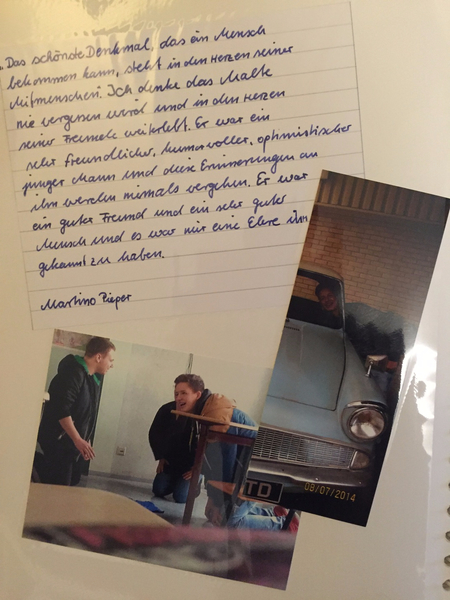 „Das schönste Denkmal, das ein Mensch
bekommen kann, steht in den Herzen seiner
Mitmenschen. Ich denke das Malte
nie vergessen wird und in den Herzen
seiner Freunde weiterlebt. Er war ein
sehr freundlicher, humorvoller, optimistischer
junger Mann und diese Erinnerungen an
ihn werden niemals vergehen. Er war
ein guter Freund und ein sehr guter
Mensch und es war mir eine Ehre ihn
gekannt zu haben.
Martino Pieper
TD
08/07/2014